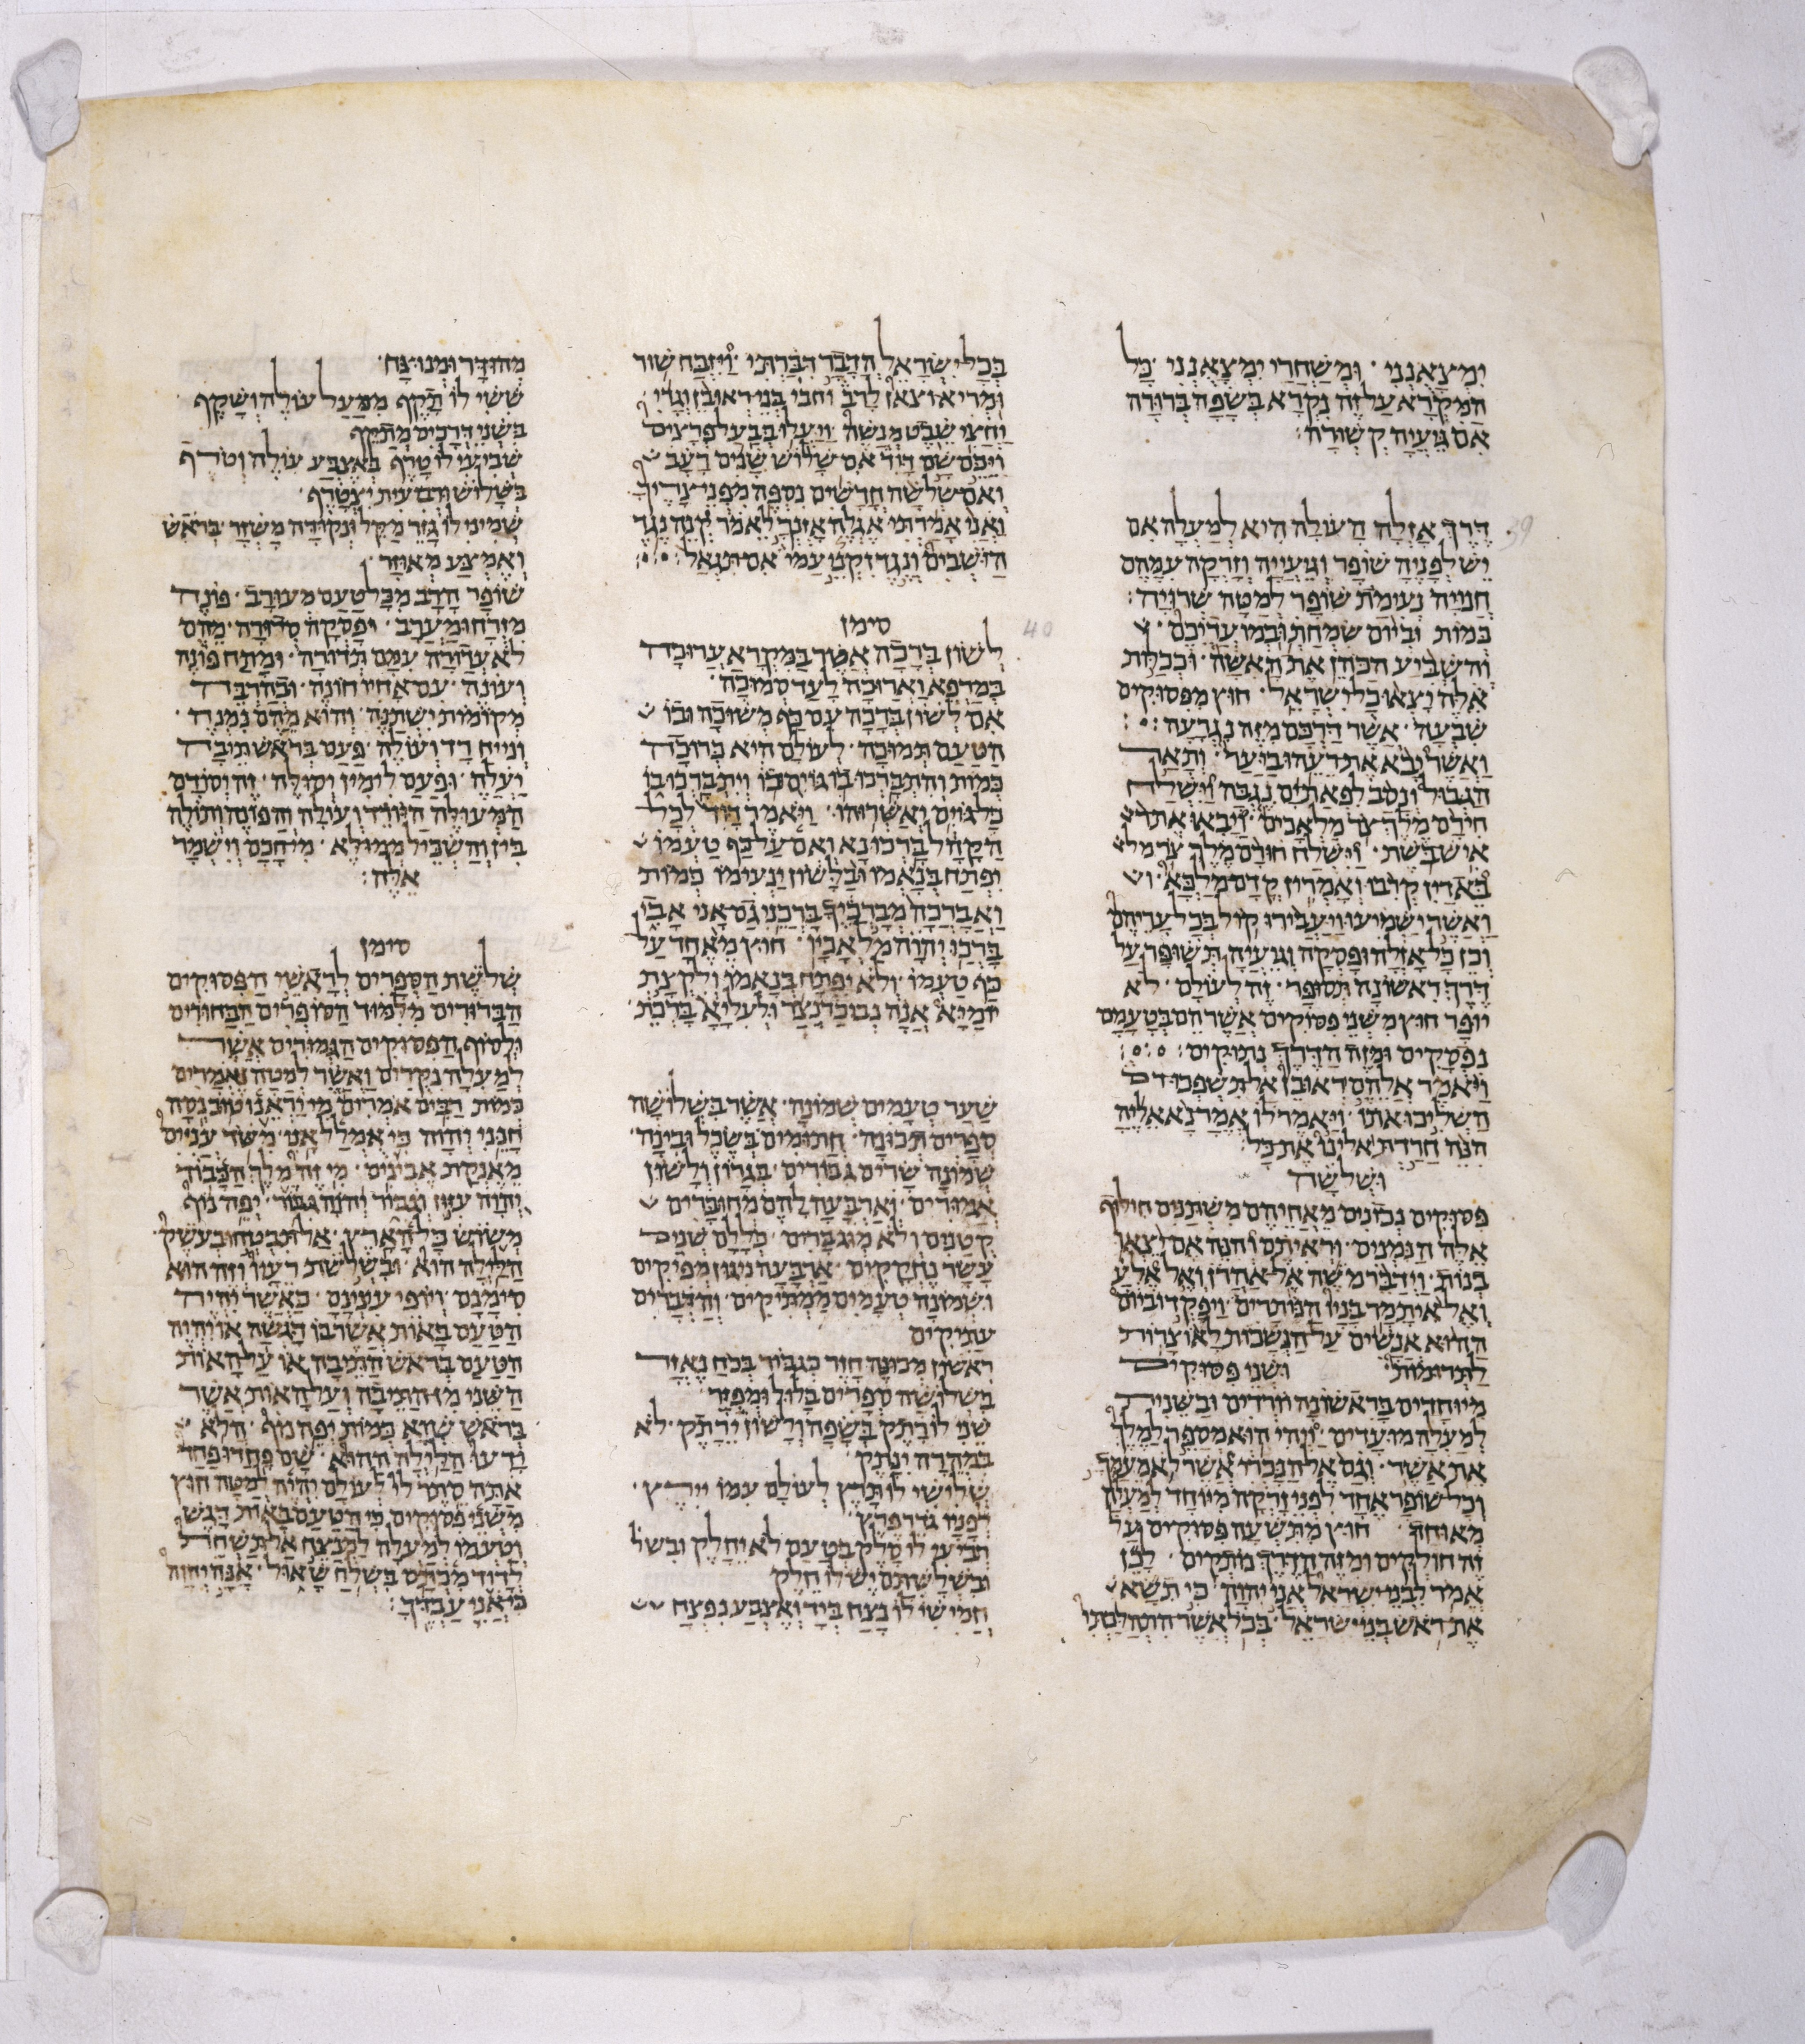 ימצאנני · ומשחרי ימצאנני · כל
המקרא על זה נקרא בשפה ברורה
אם געיה קשורה :
דרך אזלה העולה היא למעלה אם
יש לפניה שופר וגעייה וזרקה עמהם
חנויה נעימת שופר למטה שרויה :
כמות וביום שמחתכם ובמועדיכם ·
והשביע הכהן את האשה · וככלות
אלה יצאו כל ישראל · חוץ מפסוקים
שבעה · אשר דרכם מזה נגרעה :
ואשר יבא את רעהו ביער · ותאר
הגבול ונסב לפאת ים נגבה וישלח
חירם מלך צר מלאכים · ויבאו את ר
איש בשת · וישלח חורם מלך צר מל
באדין קרבו ואמרין קדם מלכא · ו
ואשר ישמיעו ויעבירו קול בכל עריהם
וכן כל אזלה ופסקה וגעיה תשופר על
דרך ראשונה תסופר · זה לעולם · לא
יופר חוץ משני פסוקים אשר הם בטעמם
נפסקים ומזה הדרך נתוקים :
ויאמר אלהם ראובן אל תשפכו דם
השליכו אותו · ויאמר לו אמר נא אליה
הנה חרדת אלינו את כל
ושלשה
פסוקים נכונים מאחיהם משתנים חילוף
אלה הנמנים · וראיתם והנה אם יצאו
בנות · וידבר משה אל אהרן ואל אלע
ואל איתמר בניו הנותרים · ויפקדו ביום
ההוא אנשים על הנשכות לאוצרות
לתרומות ושני פסוקים
מיוחדים בראשונה יורדים ובשנית
למעלה מועדים · ויהי הוא מספר למלך
את אשר · וגם אל הנכרי אשר לא מעמך
וכל שופר אחד לפני זרקה מיוחד למעלה
מאוחה חוץ מתשעה פסוקים על
זה חולקים ומזה הדרך נתקים · לכן
אמר לבני ישראל אני יהוה · כי תשא
את ראש בני ישראל · בכל אשר התהלכתי
בכל ישראל הדבר דברתי · ויזבח שור
ומריא וצאן לרב · ובני בני ראובן וגדי
וחצי שבט מנשה · ויעלו בבעל פרצים
ויכם שם דויד אם שלוש שנים רעב
ואם שלשה חדשים נספה מפני צריך
ואני אמרתי אגלה אזנך לאמר קנה נגד
הישבים ונגד זקני עמי אם תגאל :
סימן
לשון ברכה אשר במקרא ערוכה
במרפא וארוכה לעד סמוכה ·
אם לשון ברכה עם כף משוכה ובו
הטעם תמוכה · לעולם היא ברוכה
כמות והתברכו בו גוים ובו ויתברכו בו
כל גוים יאשרוהו · ויאמר דויד לכל
הקהל ברכו נא ואם על כף טעמו
יפתח בנאמו ובלשון ינעימו כמות
ואברכה מברכיך ברכני גם אני אבי
ברכו יהוה מלאכיו · חוץ מאחד על
כף טעמו · ולא יפתח בנאמו ולקצת
יומיא אנה נבוכדנצר ולעליא ברכת
שער טעמים שמונה · אשר בשלושה
ספרים תכונה · חתומים בשכל ובינה ·
שמונה שרים גבורים · בגרון ולשון
אמורים · וארבעה להם מחוברים
קטנים ולא מוגברים · כללם שנים
עשר נחקקים · ארבעה ניגון מפיקים
ושמונה טעמים ממתיקים · והדברים
עתיקים
ראשון מכונה חזר כגבור בכח נאזר
בשלושה ספרים בלול ומפוזר
שני לו רתק בשפה ולשון ירתק · לא
במהרה ינתק ·
שלישי לו תרץ לעולם עמו יירץ ·
לפניו גדר פרץ ·
רביעי לו סלק בטעם לא יחלק ובשל
ובשלשתם יש לו חלק
חמישי לו נצח ביד ואצבע נפצח
מהודר ומנוצח ·
ששי לו תקף ממעל עולה ושקף ·
בשני דרכים מתקף
שביעי לו טרף באצבע עולה וטרף
בשלושה רביעית יצטרף ·
שמיני לו גזר מקל ונקודה משזר בראש
ואמצע מאוזר ·
שופר הרב מכל טעם מעורב · פונה
מזרח ומערב · ופסקה סדורה · מהם
לא עדורה עמם תדורה · ומתח פונה
ועונה · עם אחיו חונה · ובהרבה
מקומות ישתנה · והוא מהם נמנה ·
ונייח רד ועולה · פעם בראש תיבה
יעלה · ופעם לימין יסולה · זה יסודם
המעולה היורד ועולה והפונה ותולה
בין והשכיל ממולא · מי חכם וישמר
אלה :
סימן
שלשת הספרים לראשי הפסוקים
הברורים מלמוד הסופרים הבחורים
ולסוף הפסוקים הגמורים אשר
למעלה נקדים ואשר למטה נאמרים
כמות רבים אמרים מי יראנו טוב נסה
חנני יהוה כי אמלל אני · משד עניים
מאנקת אביונים · מי זה מלך הכבוד
יהוה עזוז וגבור יהוה גבור · יפה נוף
משוש כל הארץ · אל תבטחו בעשק
הלילה הוא · ובשלשת רעיו וזה הוא
סימנם · ויופי ענינם · כאשר יהיה
הטעם באות אשר בו הגשה או יהיה
הטעם בראש התיבה או על האות
השני מן התיבה ועל האות אשר
בראש שוא כמות יפה נוף · הלא
ידעו הלילה ההוא · שם פחדו פחד
אתה סתר לי לעולם יהיה למטה חוץ
משני פסוקים כי הטעם באות דגש
וטעמו למעלה למנצח אל תשחת
לדוד מכתם בשלח שאול · אנה יהוה
כי אני עבדך :
39
40
42